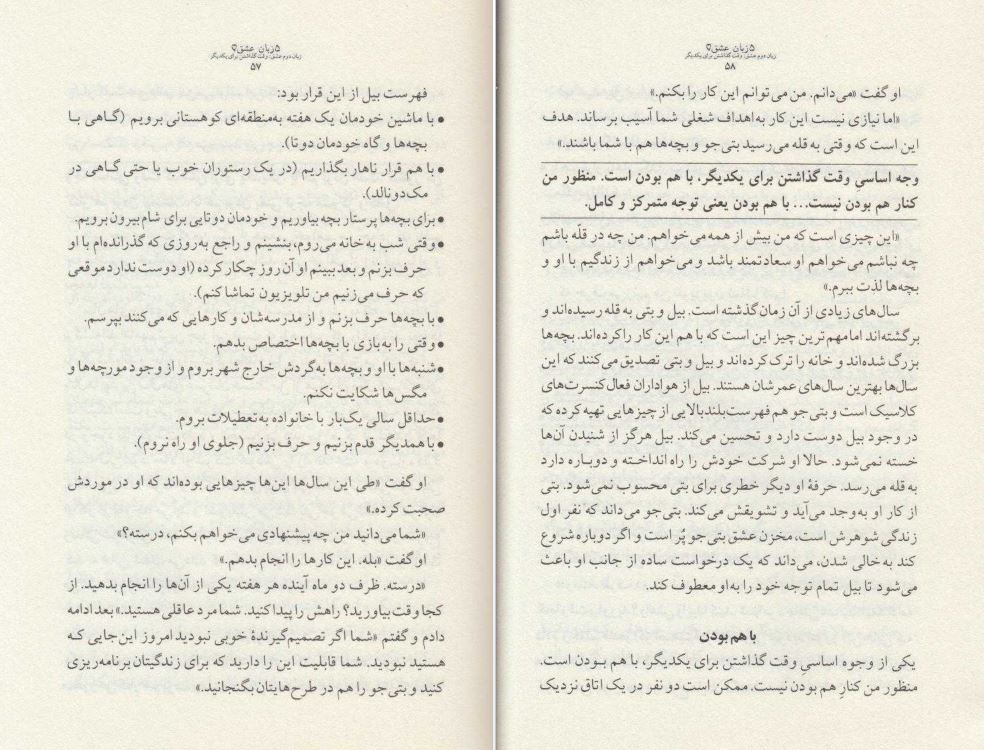 ۵ زبان عشق
زبان دوم عشق: وقت گذاشتن برای یکدیگر
۵۷
فهرست بیل از این قرار بود:
● با ماشین خودمان یک هفته به‌منطقه‌ای کوهستانی برویم (گاهی با
بچه‌ها و گاه خودمان دو تا).
● با هم قرار ناهار بگذاریم (در یک رستوران خوب یا حتی گاهی در
مک‌دونالد).
● برای بچه‌ها پرستار بچه بیاوریم و خودمان دوتایی برای شام بیرون برویم.
● وقتی شب به خانه می‌روم، بنشینم و راجع به‌روزی که گذرانده‌ام با او
حرف بزنم و بعد ببینم او آن روز چکار کرده (او دوست ندارد موقعی
که حرف می‌زنیم من تلویزیون تماشا کنم).
● با بچه‌ها حرف بزنم و از مدرسه‌شان و کارهایی که می‌کنند بپرسم.
● وقتی را به بازی با بچه‌ها اختصاص بدهم.
● شنبه‌ها با او و بچه‌ها به‌گردش خارج شهر بروم و از وجود مورچه‌ها و
مگس‌ها شکایت نکنم.
● حداقل سالی یک‌بار با خانواده به تعطیلات بروم.
● با همدیگر قدم بزنیم و حرف بزنیم (جلوی او راه نروم).
او گفت «طی این سال‌ها این‌ها چیزهایی بوده‌اند که او در موردش
صحبت کرده.»
«شما می‌دانید من چه پیشنهادی می‌خواهم بکنم، درسته؟»
او گفت «بله. این کارها را انجام بدهم.»
«درسته. ظرف دو ماه آینده هر هفته یکی از آن‌ها را انجام بدهید. از
کجا وقت بیاورید؟ راهش را پیدا کنید. شما مرد عاقلی هستید.» بعد ادامه
دادم و گفتم «شما اگر تصمیم‌گیرندهٔ خوبی نبودید امروز این‌جایی که
هستید نبودید. شما قابلیت این را دارید که برای زندگیتان برنامه‌ریزی
کنید و بتی‌جو را هم در طرح‌هایتان بگنجانید.»
۵ زبان عشق
زبان دوم عشق: وقت گذاشتن برای یکدیگر
۵۸
او گفت «می‌دانم. من می‌توانم این کار را بکنم.»
«اما نیازی نیست این کار به‌اهداف شغلی شما آسیب برساند. هدف
این است که وقتی به قله می‌رسید بتی‌جو و بچه‌ها هم با شما باشند.»
وجه اساسیِ وقت گذاشتن برای یکدیگر، با هم بودن است. منظور من
کنار هم بودن نیست... با هم بودن یعنی توجه متمرکز و کامل.
«این چیزی است که من بیش از همه می‌خواهم. من چه در قله باشم
چه نباشم می‌خواهم او سعادتمند باشد و می‌خواهم از زندگیم با او و
بچه‌ها لذت ببرم.»
سال‌های زیادی از آن زمان گذشته است. بیل و بتی به قله رسیده‌اند و
برگشته‌اند اما مهم‌ترین چیز این است که با هم این کار را کرده‌اند. بچه‌ها
بزرگ شده‌اند و خانه را ترک کرده‌اند و بیل و بتی تصدیق می‌کنند که این
سال‌ها بهترین سال‌های عمرشان هستند. بیل از هواداران فعال کنسرت‌های
کلاسیک است و بتی‌جو هم فهرست بلندبالایی از چیزهایی تهیه کرده که
در وجود بیل دوست دارد و تحسین می‌کند. بیل هرگز از شنیدن آن‌ها
خسته نمی‌شود. حالا او شرکت خودش را راه انداخته و دوباره دارد
به قله می‌رسد. حرفهٔ او دیگر خطری برای بتی محسوب نمی‌شود. بتی
از کار او به‌وجد می‌آید و تشویقش می‌کند. بتی‌جو می‌داند که نفر اول
زندگی شوهرش است، مخزن عشق بتی‌جو پُر است و اگر دوباره شروع
کند به‌خالی شدن، می‌داند که یک درخواست ساده از جانب او باعث
می‌شود تا بیل تمام توجه خود را به‌او معطوف کند.
با هم بودن
یکی از وجوه اساسیِ وقت گذاشتن برای یکدیگر، با هم بودن است.
منظور من کنارِ هم بودن نیست. ممکن است دو نفر در یک اتاق نزدیک